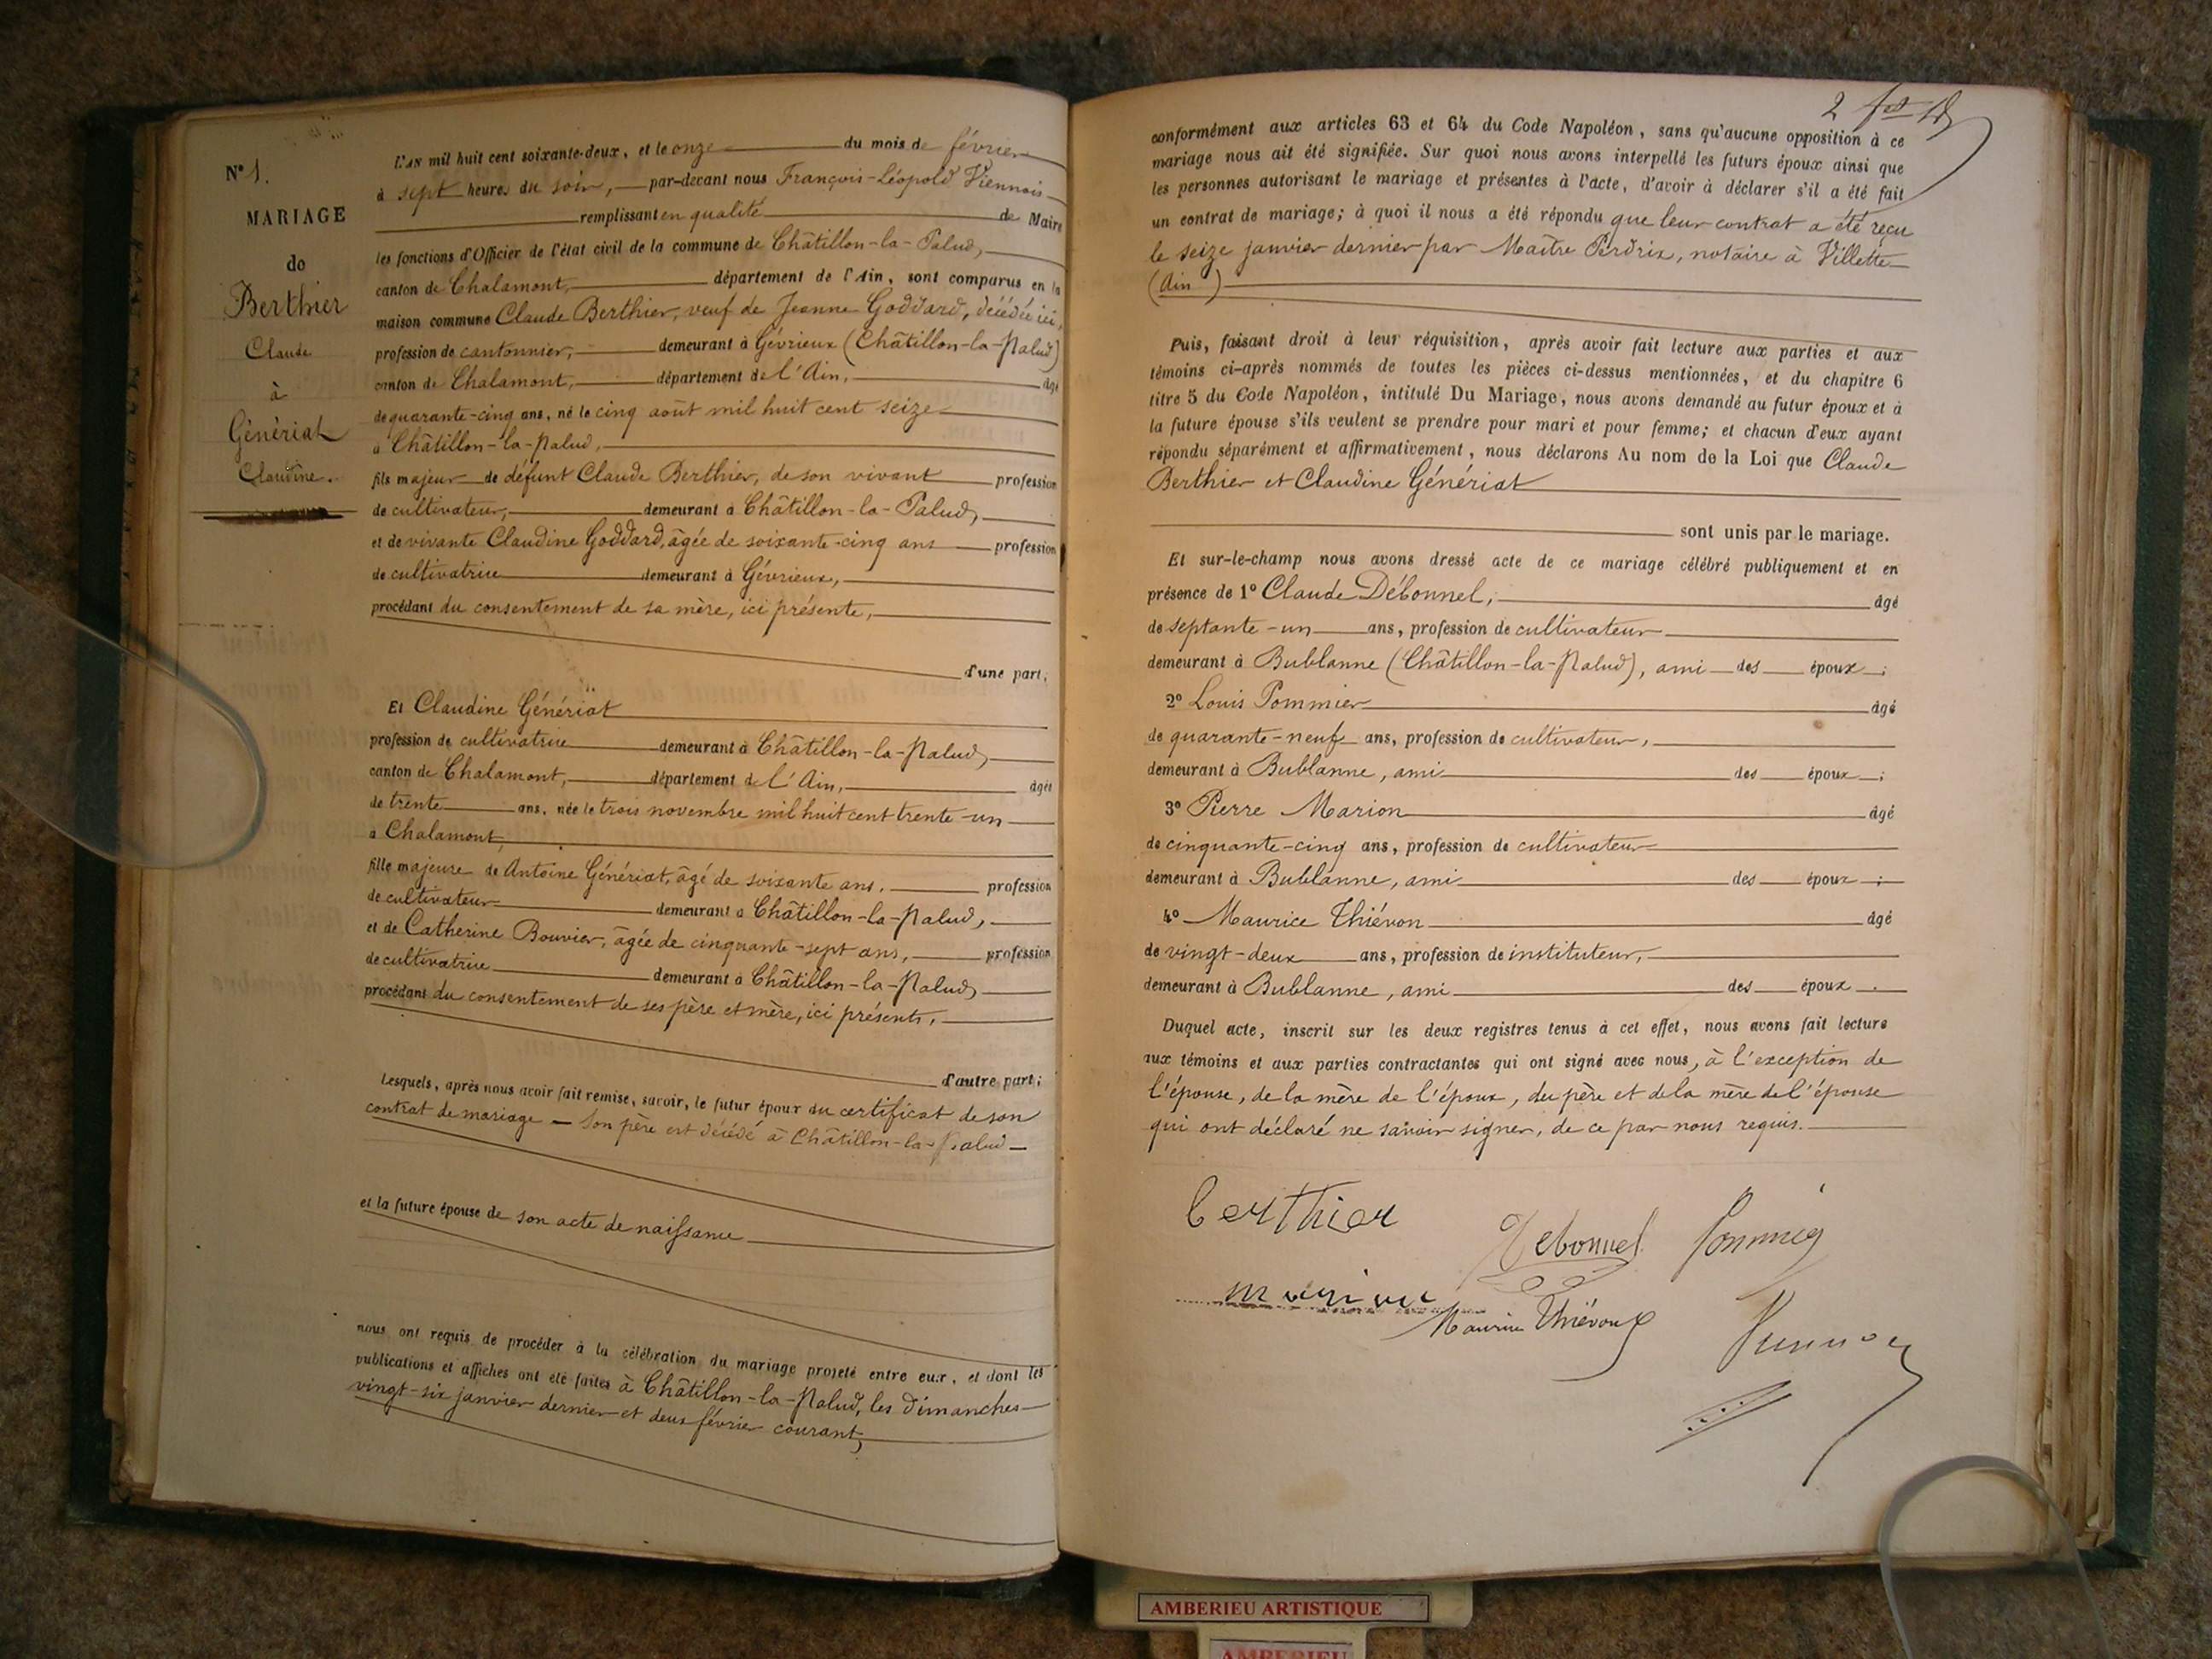 N° 1.
MARIAGE
de
Berthier
Claude
à
Génériat
Claudine.
L'AN mil huit cent soixante-deux, et le onze du mois de février
à sept heures du soir, par-devant nous François-Léopold Viennois
remplissant en qualité de Maire
les fonctions d'Officier de l'état civil de la commune de Châtillon-la-Palud,
canton de Chalamont, département de l'Ain, sont comparus en la
maison commune Claude Berthier, veuf de Jeanne Goddard, décédée ici,
profession de cantonnier, demeurant à Gévrieux (Châtillon-la-Palud)
canton de Chalamont, département de l'Ain, âgé
de quarante-cinq ans, né le cinq août mil huit cent seize
à Châtillon-la-Palud,
fils majeur de défunt Claude Berthier, de son vivant profession
de cultivateur, demeurant à Châtillon-la-Palud,
et de vivante Claudine Goddard, âgée de soixante-cinq ans profession
de cultivatrice demeurant à Gévrieux,
procédant du consentement de sa mère, ici présente,
d'une part,
Et Claudine Génériat
profession de cultivatrice demeurant à Châtillon-la-Palud,
canton de Chalamont, département de l'Ain, âgée
de trente ans, née le trois novembre mil huit cent trente-un
à Chalamont,
fille majeure de Antoine Génériat, âgé de soixante ans, profession
de cultivateur demeurant à Châtillon-la-Palud,
et de Catherine Bouvier, âgée de cinquante-sept ans, profession
de cultivatrice demeurant à Châtillon-la-Palud,
procédant du consentement de ses père et mère, ici présents,
d'autre part;
Lesquels, après nous avoir fait remise, savoir, le futur époux du certificat de son
contrat de mariage — Son père est décédé à Châtillon-la-Palud —
et la future épouse de son acte de naissance
nous ont requis de procéder à la célébration du mariage projeté entre eux, et dont les
publications et affiches ont été faites à Châtillon-la-Palud, les dimanches
vingt-six janvier dernier et deux février courant,
2
conformément aux articles 63 et 64 du Code Napoléon, sans qu'aucune opposition à ce
mariage nous ait été signifiée. Sur quoi nous avons interpellé les futurs époux ainsi que
les personnes autorisant le mariage et présentes à l'acte, d'avoir à déclarer s'il a été fait
un contrat de mariage; à quoi il nous a été répondu que leur contrat a été reçu
le seize janvier dernier par Maître Perdrix, notaire à Villette
(Ain)
Puis, faisant droit à leur réquisition, après avoir fait lecture aux parties et aux
témoins ci-après nommés de toutes les pièces ci-dessus mentionnées, et du chapitre 6
titre 5 du Code Napoléon, intitulé Du Mariage, nous avons demandé au futur époux et à
la future épouse s'ils veulent se prendre pour mari et pour femme; et chacun d'eux ayant
répondu séparément et affirmativement, nous déclarons Au nom de la Loi que Claude
Berthier et Claudine Génériat
sont unis par le mariage.
Et sur-le-champ nous avons dressé acte de ce mariage célébré publiquement et en
présence de 1° Claude Débonnel, âgé
de septante-un ans, profession de cultivateur
demeurant à Bublanne (Châtillon-la-Palud), ami des époux;
2° Louis Pommier âgé
de quarante-neuf ans, profession de cultivateur,
demeurant à Bublanne, ami des époux;
3° Pierre Marion âgé
de cinquante-cinq ans, profession de cultivateur
demeurant à Bublanne, ami des époux;
4° Maurice Thiévon âgé
de vingt-deux ans, profession de instituteur,
demeurant à Bublanne, ami des époux.
Duquel acte, inscrit sur les deux registres tenus à cet effet, nous avons fait lecture
aux témoins et aux parties contractantes qui ont signé avec nous, à l'exception de
l'épouse, de la mère de l'époux, du père et de la mère de l'épouse
qui ont déclaré ne savoir signer, de ce par nous requis.
berthier
Debonnel Pommier
marion
Maurice Thiévon
Viennois
AMBERIEU ARTISTIQUE
AMBERIEU